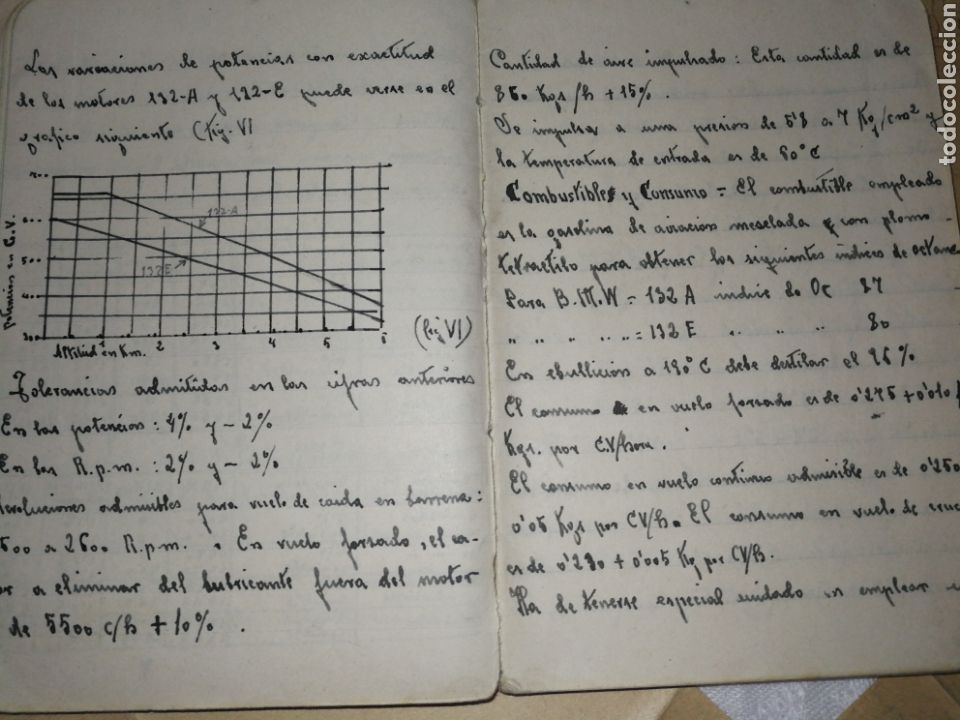 Las variaciones de potencias con exactitud
de los motores 132-A y 132-E puede verse en el
grafico siguiente (Fig. VI
700
600
500
400
300
Potencias en C.V.
132-A
132 E
Altitud en Km.
1 2 3 4 5 6
(fig VI)
Tolerancias admitidas en las cifras anteriores
En las potencias: 4% y - 2%
En las R.p.m.: 2% y - 2%
Revoluciones admisibles para vuelo de caida en barrena:
500 a 2600 R.p.m. . En vuelo forzado, el ca-
or a eliminar del lubricante fuera del motor
de 5500 c/h + 10% .
Cantidad de aire impulsado: Esta cantidad es de
850 Kgs/h + 15% .
Se impulsa a una presion de 5'8 a 7 Kg/cm² y
la temperatura de entrada es de 60°C
Combustibles y Consumo = El combustible empleado
es la gasolina de aviacion mezclada con plomo
tetraetilo para obtener los siguientes indices de octano
Para B.M.W = 132 A indice de Oc 87
" " " " " = 132 E " " " 80
En ebullicion a 130°C debe destilar el 96%
El consumo en vuelo forzado es de 0'275 + 0'010
Kgs. por CV/hora.
El consumo en vuelo continuo admisible es de 0'250
0'05 Kgs por CV/h. El consumo en vuelo de cruc
es de 0'230 + 0'005 Kg por CV/h.
Ha de tenerse especial cuidado en emplear
todocoleccion